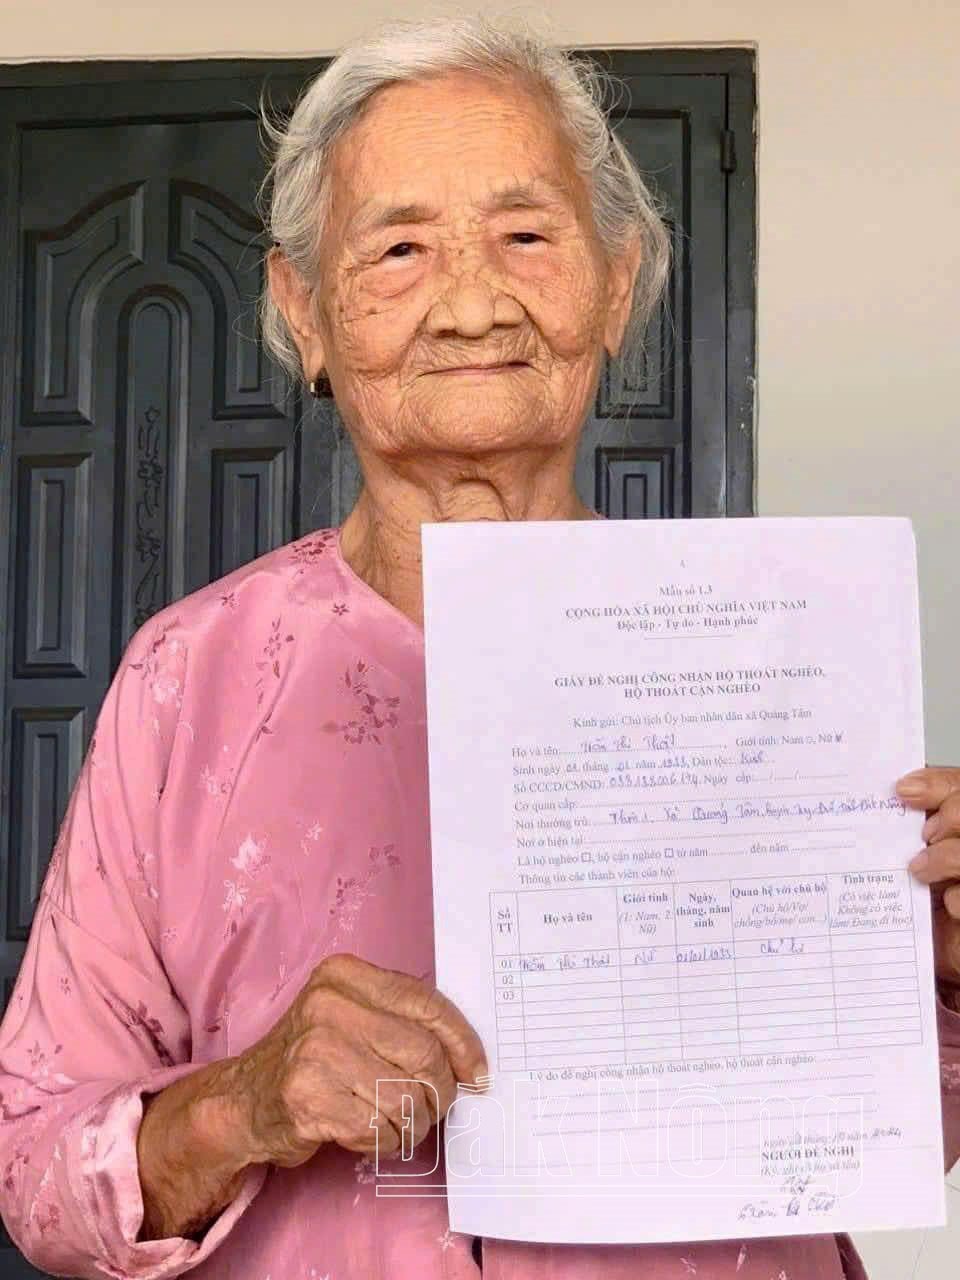 Mẫu số 1.3
CỘNG HÒA XÃ HỘI CHỦ NGHĨA VIỆT NAM
Độc lập - Tự do - Hạnh phúc
GIẤY ĐỀ NGHỊ CÔNG NHẬN HỘ THOÁT NGHÈO,
HỘ THOÁT CẬN NGHÈO
Kính gửi: Chủ tịch Ủy ban nhân dân xã Quảng Tâm
Họ và tên: Trần Thị Thật, Giới tính: Nam □, Nữ
Sinh ngày 01 tháng 01 năm 1933, Dân tộc: Kinh
Số CCCD/CMND: Ngày cấp: ..../....../......
Cơ quan cấp:
Nơi thường trú: Thôn 1, xã Quảng Tâm, huyện Tuy Đức, tỉnh Đắk Nông
Nơi ở hiện tại:
Là hộ nghèo □, hộ cận nghèo □ từ năm ........... đến năm
Thông tin các thành viên của hộ:
Số TT Họ và tên Giới tính (1: Nam, 2: Nữ) Ngày, tháng, năm sinh Quan hệ với chủ hộ (Chủ hộ/Vợ/ chồng/bố/mẹ/ con...) Tình trạng (Có việc làm/ Không có việc làm/ Đang đi học)
01 Trần Thị Thật Nữ 01/01/1933 Chủ hộ
02
03
Lý do đề nghị công nhận hộ thoát nghèo, hộ thoát cận nghèo:
Đắk Nông
ngày tháng 10 năm 2024
NGƯỜI ĐỀ NGHỊ
(Ký, ghi rõ họ và tên)
Trần Thị Thật